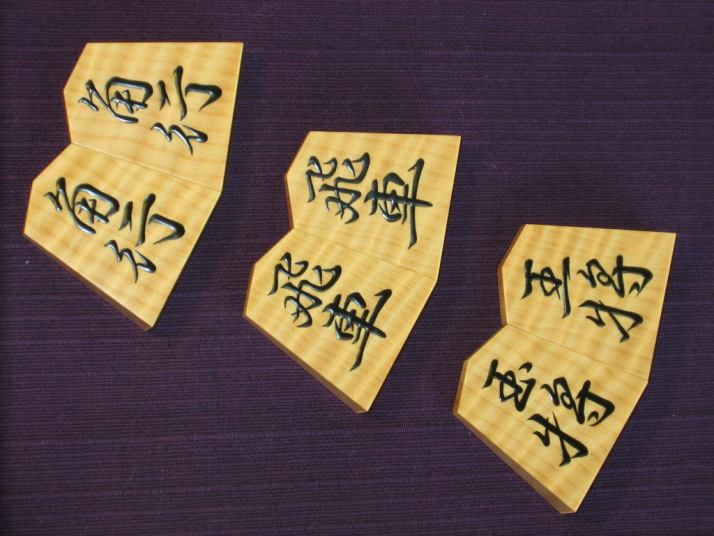 角行
角行
飛車
飛車
王将
玉将